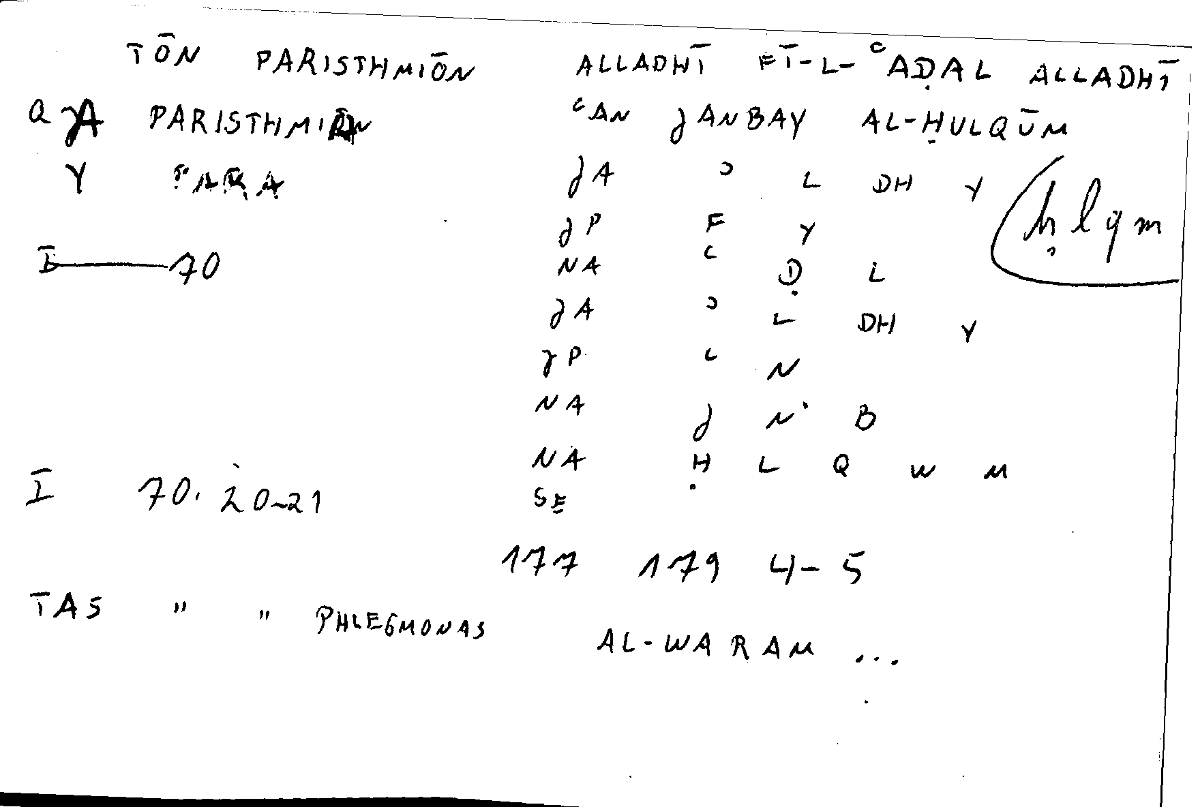 TŌN PARISTHMIŌN ALLADHĪ FĪ-L-ʿAḌAL ALLADHĪ
PARISTHMION ʿAN JANBAY AL-ḤULQŪM
Y PARA JA ʾ L DH Y
ḥlqm
JP F Y
I 70 NA ʿ Ḍ L
JA ʾ L DH Y
JP ʿ N
NA J N B
NA Ḥ L Q W M
I 70. 20-21 SE
177 179 4-5
TAS " " PHLEGMONAS AL-WARAM ...